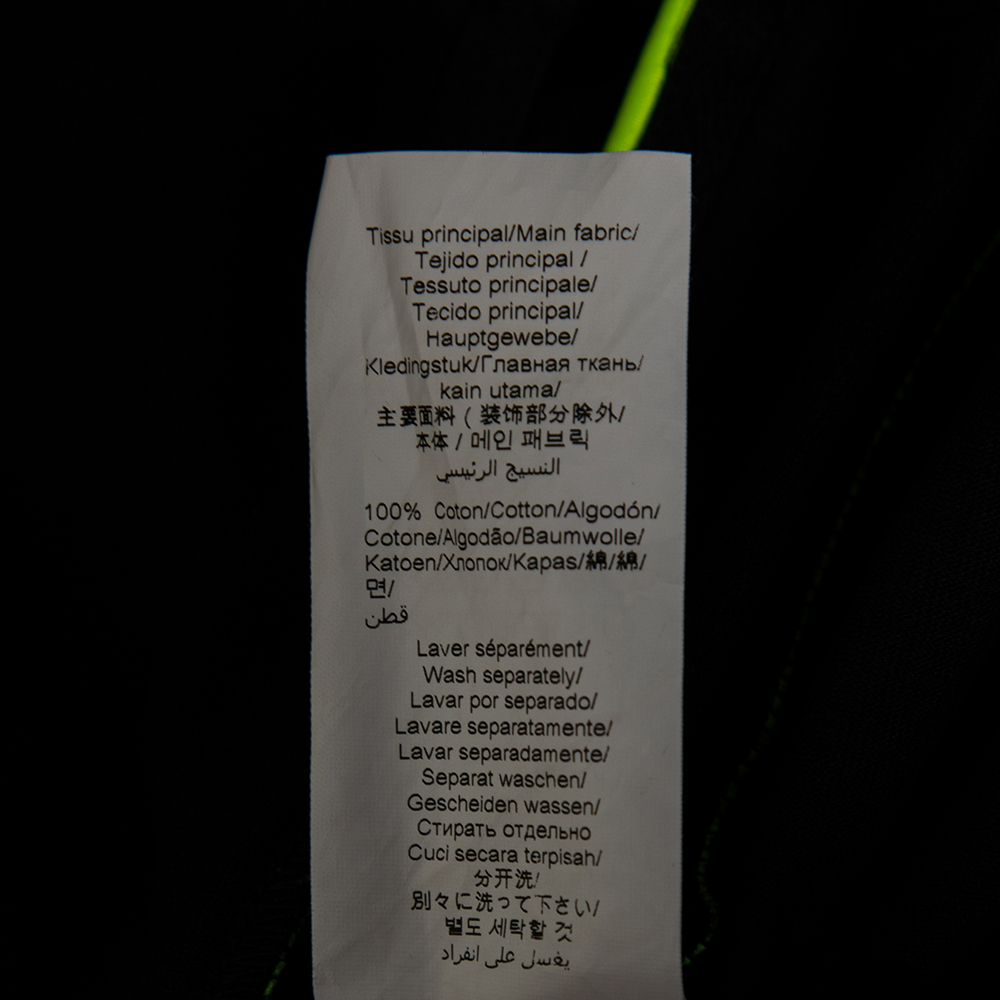 Tissu principal/Main fabric/
Tejido principal /
Tessuto principale/
Tecido principal/
Hauptgewebe/
Kledingstuk/Главная ткань/
kain utama/
主要面料 ( 装饰部分除外/
本体 / 메인 패브릭
النسيج الرئيسي
100% Coton/Cotton/Algodón/
Cotone/Algodão/Baumwolle/
Katoen/Хлопок/Kapas/綿/綿/
면/
قطن
Laver séparément/
Wash separately/
Lavar por separado/
Lavare separatamente/
Lavar separadamente/
Separat waschen/
Gescheiden wassen/
Стирать отдельно
Cuci secara terpisah/
分开洗/
別々に洗って下さい/
별도 세탁할 것
يغسل على انفراد